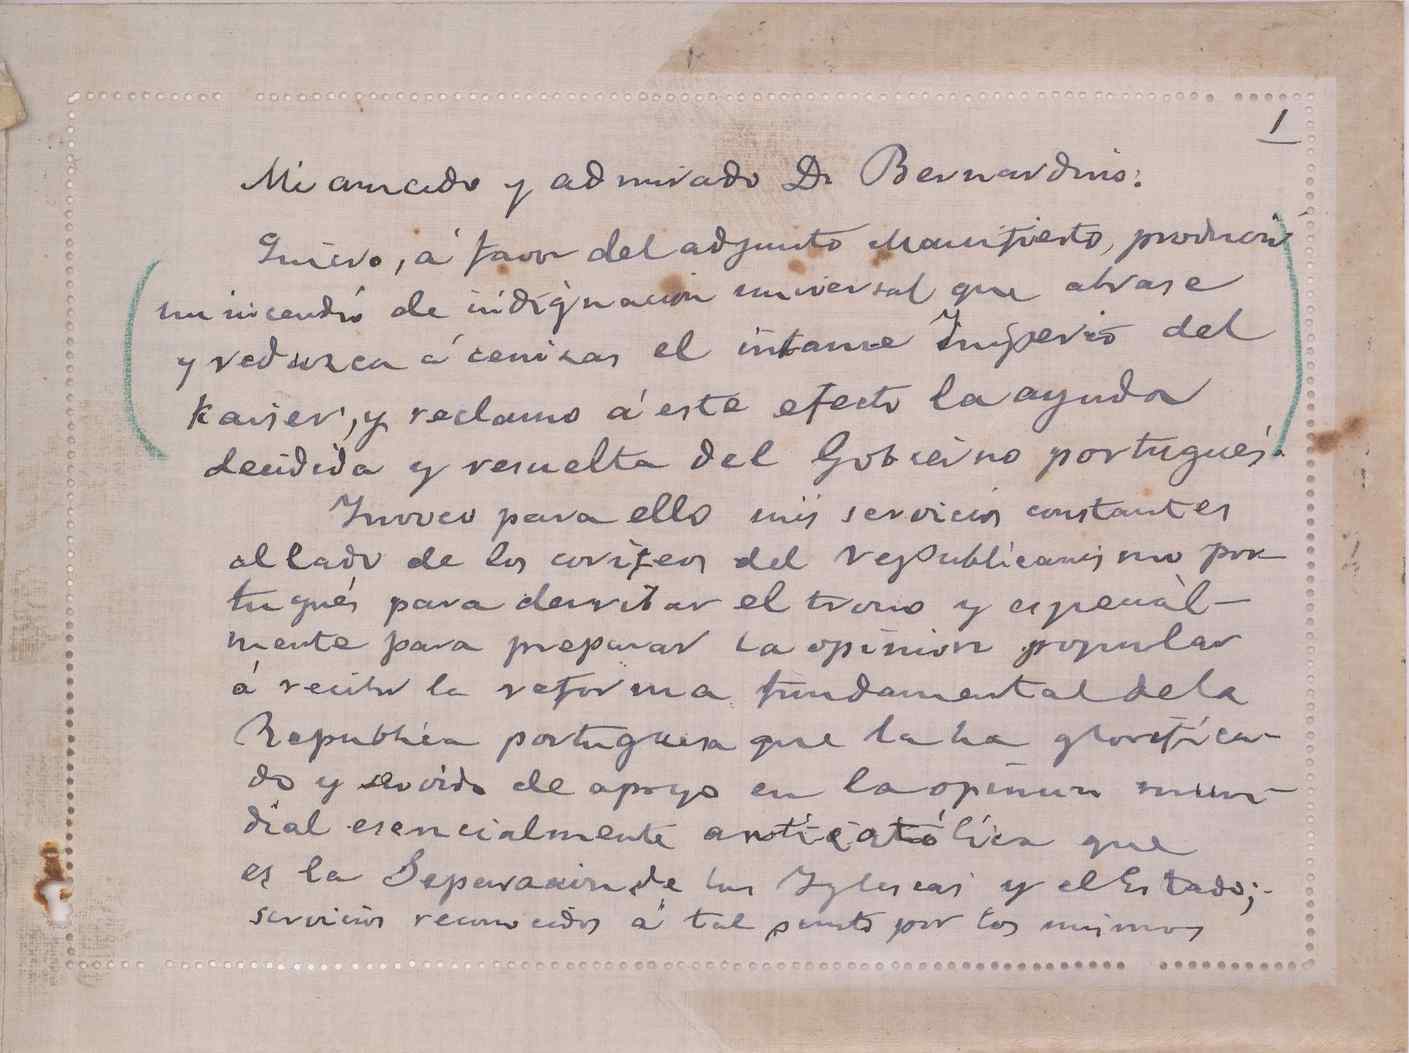 1
Mi amado y admirado Dr Bernardino:
Quiero, á favor del adjunto Manifiesto, producir
un incendio de indignación universal que abrase
y reduzca á cenizas el infame Imperio del
Kaiser, y reclamo á este efecto la ayuda
decidida y resuelta del Gobierno portugués.
Invoco para ello mis servicios constantes
al lado de los corifeos del republicanismo por-
tugués para derribar el trono y especial-
mente para preparar la opinion popular
á recibir la reforma fundamental de la
Republica portuguesa que la ha glorifica-
do y servido de apoyo en la opinion mun-
dial esencialmente anticatólica que
es la Separacion de las Iglesias y el Estado;
servicios reconocidos á tal punto por los mismos